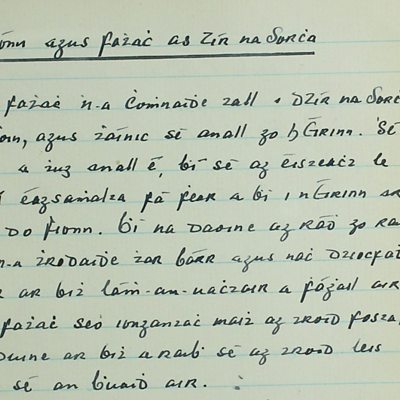 ionn agus Faṫaċ as Tír na Sorċa
faṫaċ 'n-a ċoṁnaiḋe ṫall i dTír na Sorċ
oin, agus ṫáinic sé anall go hÉirinn. 'Sé
a ṫug anall é, ḃí sé ag éisteaċt le
éagsaṁalta fá fear a ḃí i nÉirinn ar
do Fionn. Ḃí na daoine ag ráḋ go ra
n-a ṫrodaiḋe ṫar bárr agus naċ dtiocfaḋ
ar biṫ láṁ-an-uaċtair a fáġail air
faṫaċ seo iongantaċ maiṫ ag troid fosta,
duine ar biṫ a raiḃ sé ag troid leis
sé an buaiḋ air.